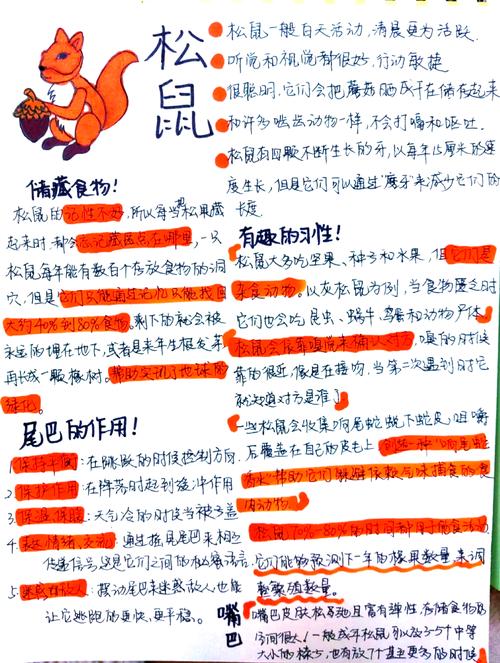 松鼠
松鼠一般白天活动,清晨更为活跃.
听觉和视觉都很好,行动敏捷
很聪明,它们会把蘑菇晒成干在储存起来
和许多啮齿动物一样,不会打嗝和呕吐.
松鼠有四颗不断生长的牙,以每年15厘米的速
度生长,但是它们可以通过"磨牙"来减少它们的
长度
储藏食物!
松鼠的记性不好,所以每当松果藏
起来时,都会忘记藏匿点在哪里,一只
松鼠每年能有数百个存放食物的洞
穴,但是它们只能通过记忆只能找回
大约40%到80%食物。剩下的就会被
永远的埋在地下,或者是来年生根发芽
再长成一颗橡树。帮助实现了地球的
绿化。
有趣的习性!
松鼠大多吃坚果、种子和水果,但它们是
杂食动物。以灰松鼠为例,当食物匮乏时
它们也会吃昆虫、蜗牛、鸟蛋和动物尸体
松鼠会依靠嗅觉来确认对方,嗅的时候
靠的很近,像是在接吻,当第二次遇到时它
就知道对方是谁了
一些松鼠会收集响尾蛇蜕下蛇皮,咀嚼
后覆盖在自己的皮毛上,创造一种"响尾蛇
香水"帮助它们躲避依赖气味捕食的食
肉动物
松鼠70%-80%的时间都用于觅食活动
它们能够预测下一年的橡果数量来调
整繁殖数量。
尾巴的作用!
1.保持平衡:在跳跃的时候控制方向.
2.保护作用:在降落时起到缓冲作用
3.保温保暖:天气冷的时候当被子盖
4.表达情绪,交流:通过摇尾巴来相互
传递信号,这是它们之间的秘密语言.
5.迷惑敌人:摆动尾巴来迷惑敌人也能
让它她跑的更快、更平稳。
嘴巴
嘴巴皮肤松弛且富有弹性,存储食物的
空间很大!一般成年松鼠可以放3-5个中等
大小的核桃,也有放7个甚至更多的时候